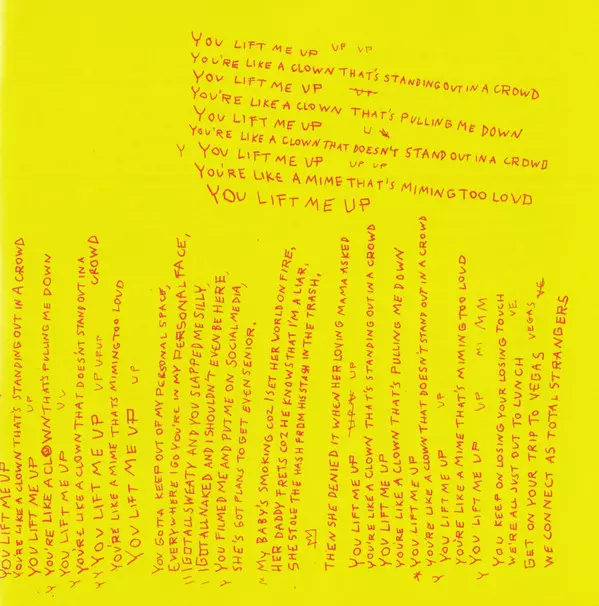 YOU LIFT ME UP UP UP
YOU'RE LIKE A CLOWN THAT'S STANDING OUT IN A CROWD
YOU LIFT ME UP UP
YOU'RE LIKE A CLOWN THAT'S PULLING ME DOWN
YOU LIFT ME UP U
YOU'RE LIKE A CLOWN THAT DOESN'T STAND OUT IN A CROWD
Y YOU LIFT ME UP UP UP
YOU'RE LIKE A MIME THAT'S MIMING TOO LOUD
YOU LIFT ME UP
YOU LIFT ME UP
YOU'RE LIKE A CLOWN THAT'S STANDING OUT IN A CROWD
YOU LIFT ME UP UP
YOU'RE LIKE A CLOWN THAT'S PULLING ME DOWN
Y YOU LIFT ME UP
YOU'RE LIKE A CLOWN THAT DOESN'T STAND OUT IN A CROWD
YY YOU LIFT ME UP UP UP UP
YOU'RE LIKE A MIME THAT'S MIMING TOO LOUD
YOU LIFT ME UP UP
YOU GOTTA KEEP OUT OF MY PERSONAL SPACE,
EVERYWHERE I GO YOU'RE IN MY PERSONAL FACE,
I I I GOT ALL SWEATY AND YOU SLAPPED ME SILLY
I GOT ALL NAKED AND I SHOULDN'T EVEN BE HERE
Y YOU FILMED ME AND PUT ME ON SOCIAL MEDIA,
SHE'S GOT PLANS TO GET EVEN SENIOR.
MY BABY'S SMOKING COZ I SET HER WORLD ON FIRE,
HER DADDY FRETS COZ HE KNOWS THAT I'M A LIAR,
SHE STOLE THE HASH FROM HIS STASH IN THE TRASH,
THEN SHE DENIED IT WHEN HER LOVING MAMA ASKED
YOU LIFT ME UP UP UP UP
YOU'RE LIKE A CLOWN THAT'S STANDING OUT IN A CROWD
YOU LIFT ME UP
YOU'RE LIKE A CLOWN THAT'S PULLING ME DOWN
YOU LIFT ME UP
YOU'RE LIKE A CLOWN THAT DOESN'T STAND OUT IN A CROWD
Y YOU LIFT ME UP UP
YOU'RE LIKE A MIME THAT'S MIMING TOO LOUD
Y YOU LIFT ME UP UP MI MM
Y YOU KEEP ON LOSING YOUR LOSING TOUCH
WE'RE ALL JUST OUT TO LUNCH VE
GET ON YOUR TRIP TO VEGAS VEGAS VE
WE CONNECT AS TOTAL STRANGERS